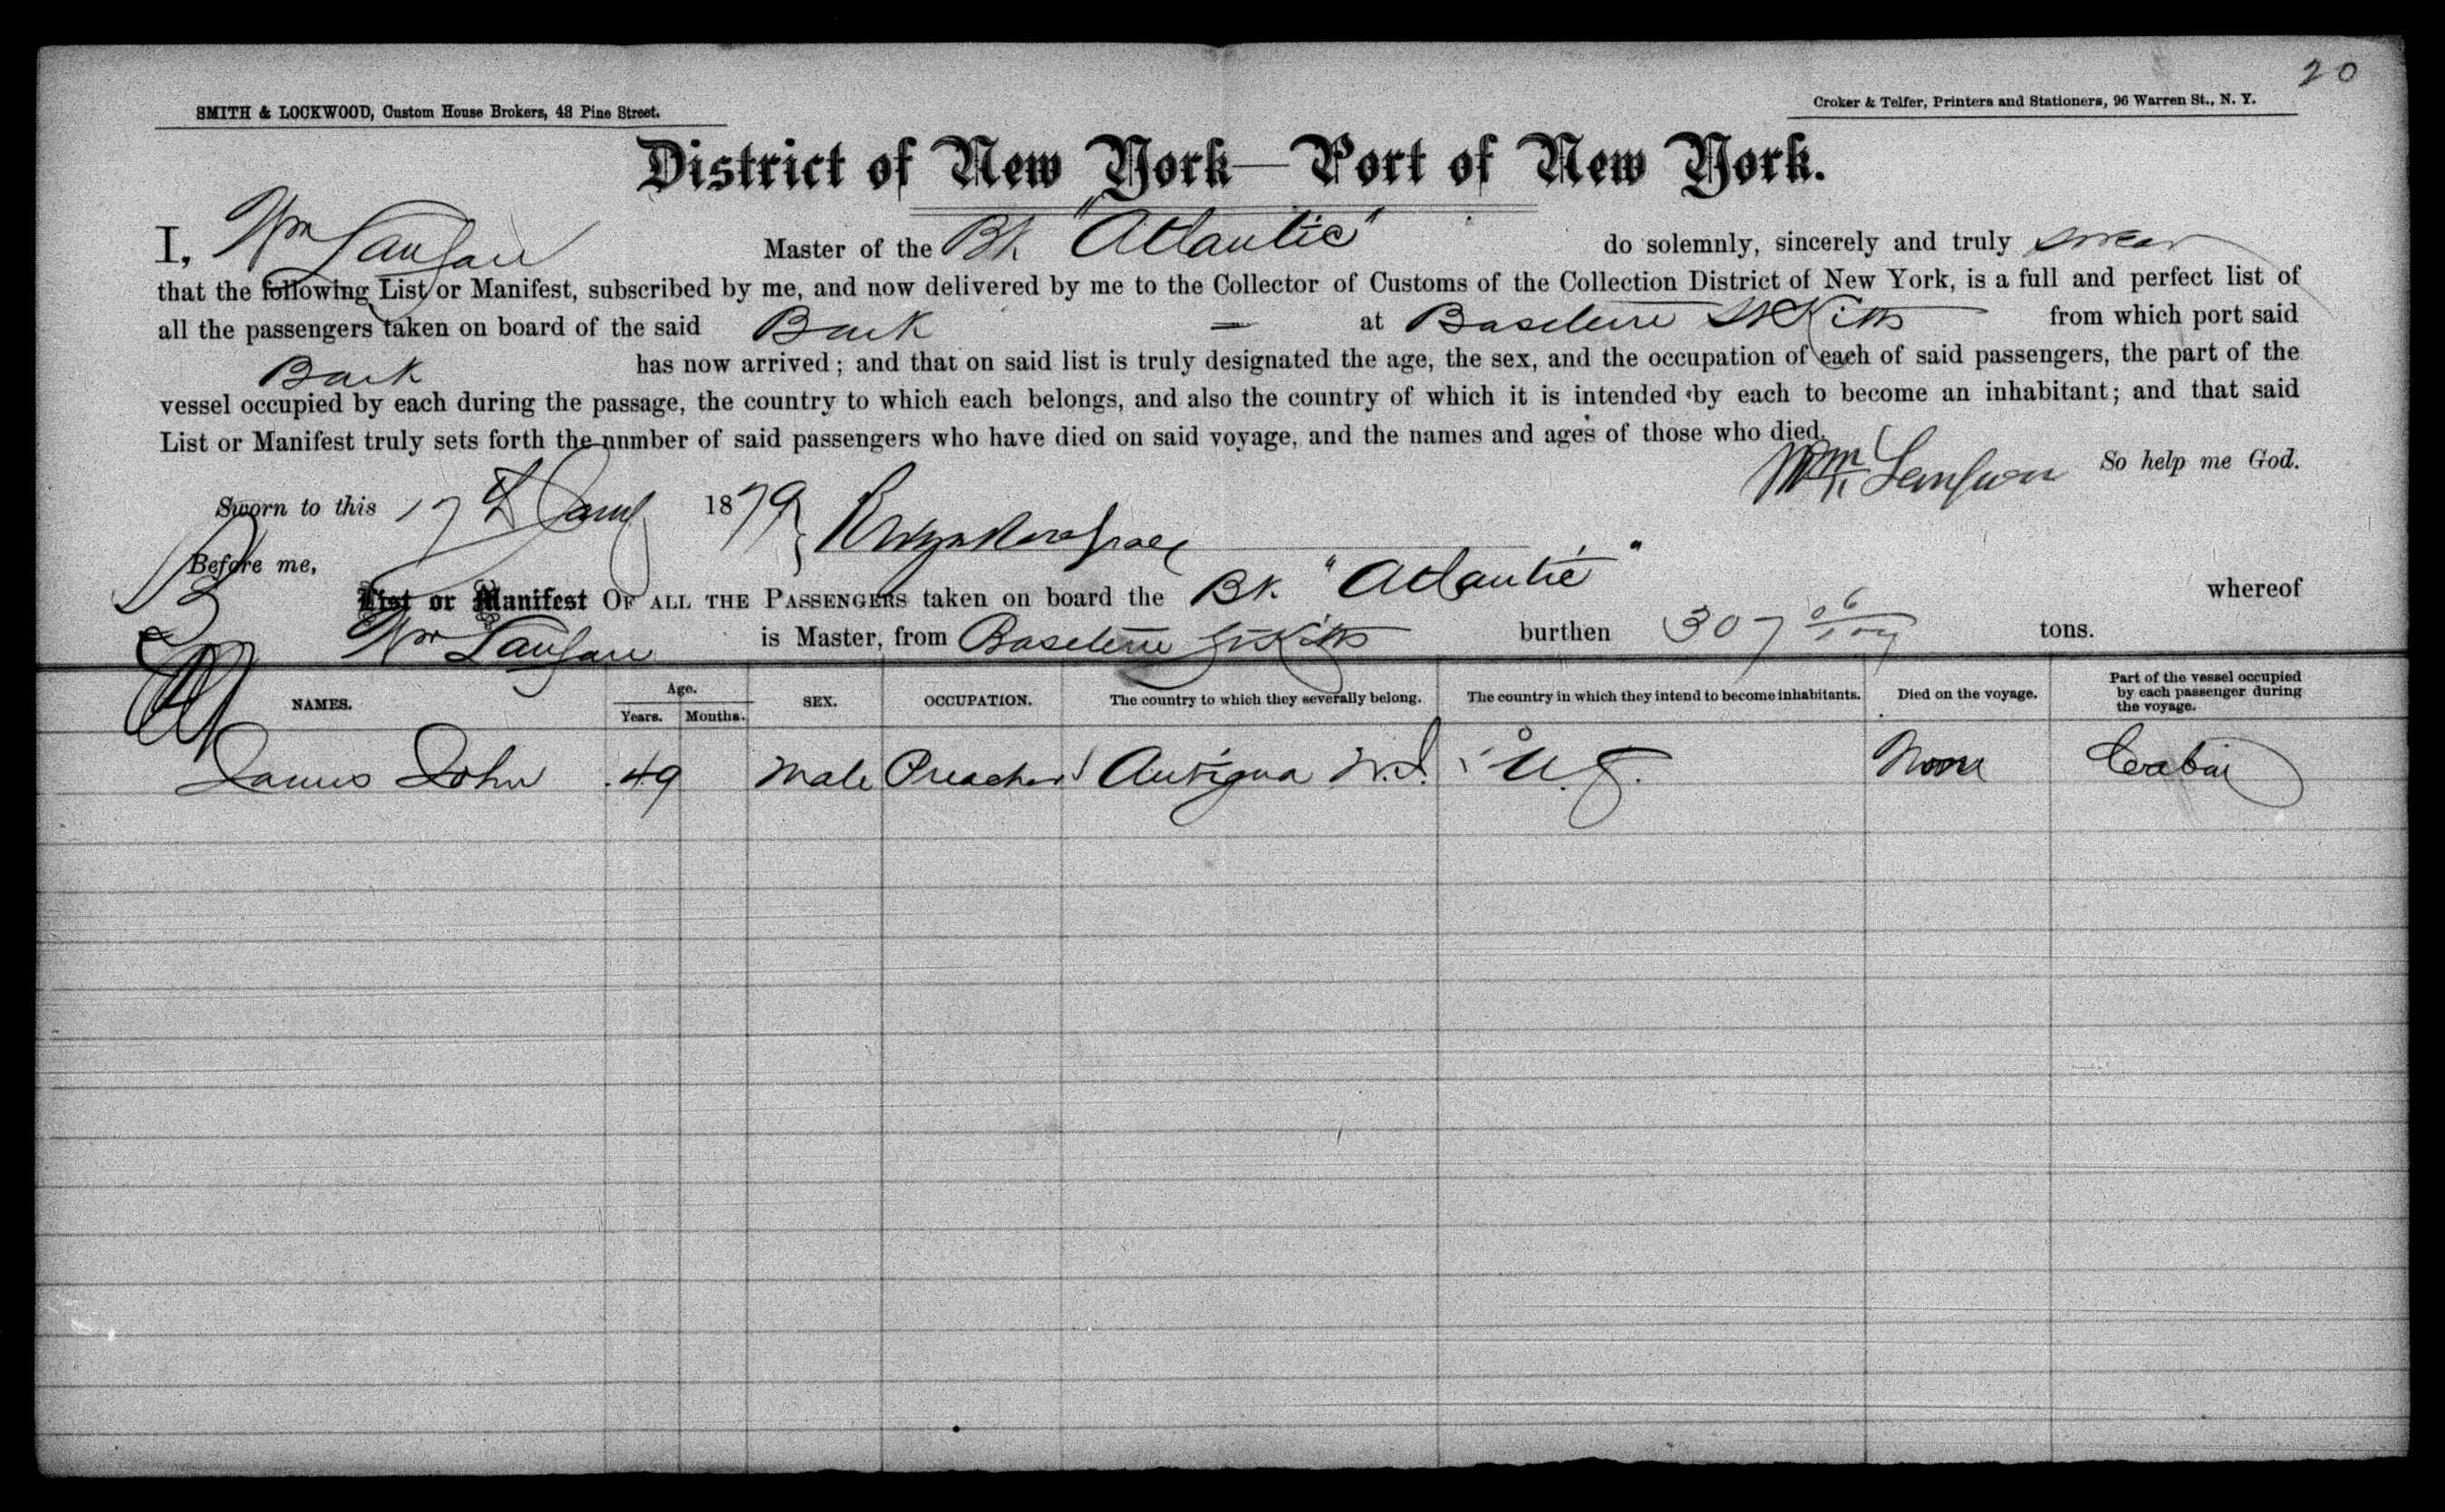 20
SMITH & LOCKWOOD, Custom House Brokers, 48 Pine Street.
Croker & Telfer, Printers and Stationers, 96 Warren St., N. Y.
District of New York—Port of New York.
I, Wm Master of the Bk "Atlantic" do solemnly, sincerely and truly swear
that the following List or Manifest, subscribed by me, and now delivered by me to the Collector of Customs of the Collection District of New York, is a full and perfect list of
all the passengers taken on board of the said Bark = at Baseterre St Kitts from which port said
Bark has now arrived; and that on said list is truly designated the age, the sex, and the occupation of each of said passengers, the part of the
vessel occupied by each during the passage, the country to which each belongs, and also the country of which it is intended by each to become an inhabitant; and that said
List or Manifest truly sets forth the number of said passengers who have died on said voyage, and the names and ages of those who died.
Wm So help me God.
Sworn to this 17th Jany 1879
Before me,
List or Manifest OF ALL THE PASSENGERS taken on board the Bk. "Atlantic" whereof
Wm is Master, from Baseterre St Kitts burthen 307 tons.
NAMES. Age. Years. Months. SEX. OCCUPATION. The country to which they severally belong. The country in which they intend to become inhabitants. Died on the voyage. Part of the vessel occupied by each passenger during the voyage.
James John 49 Male Preacher Antigua W.I. U.S. None Cabin